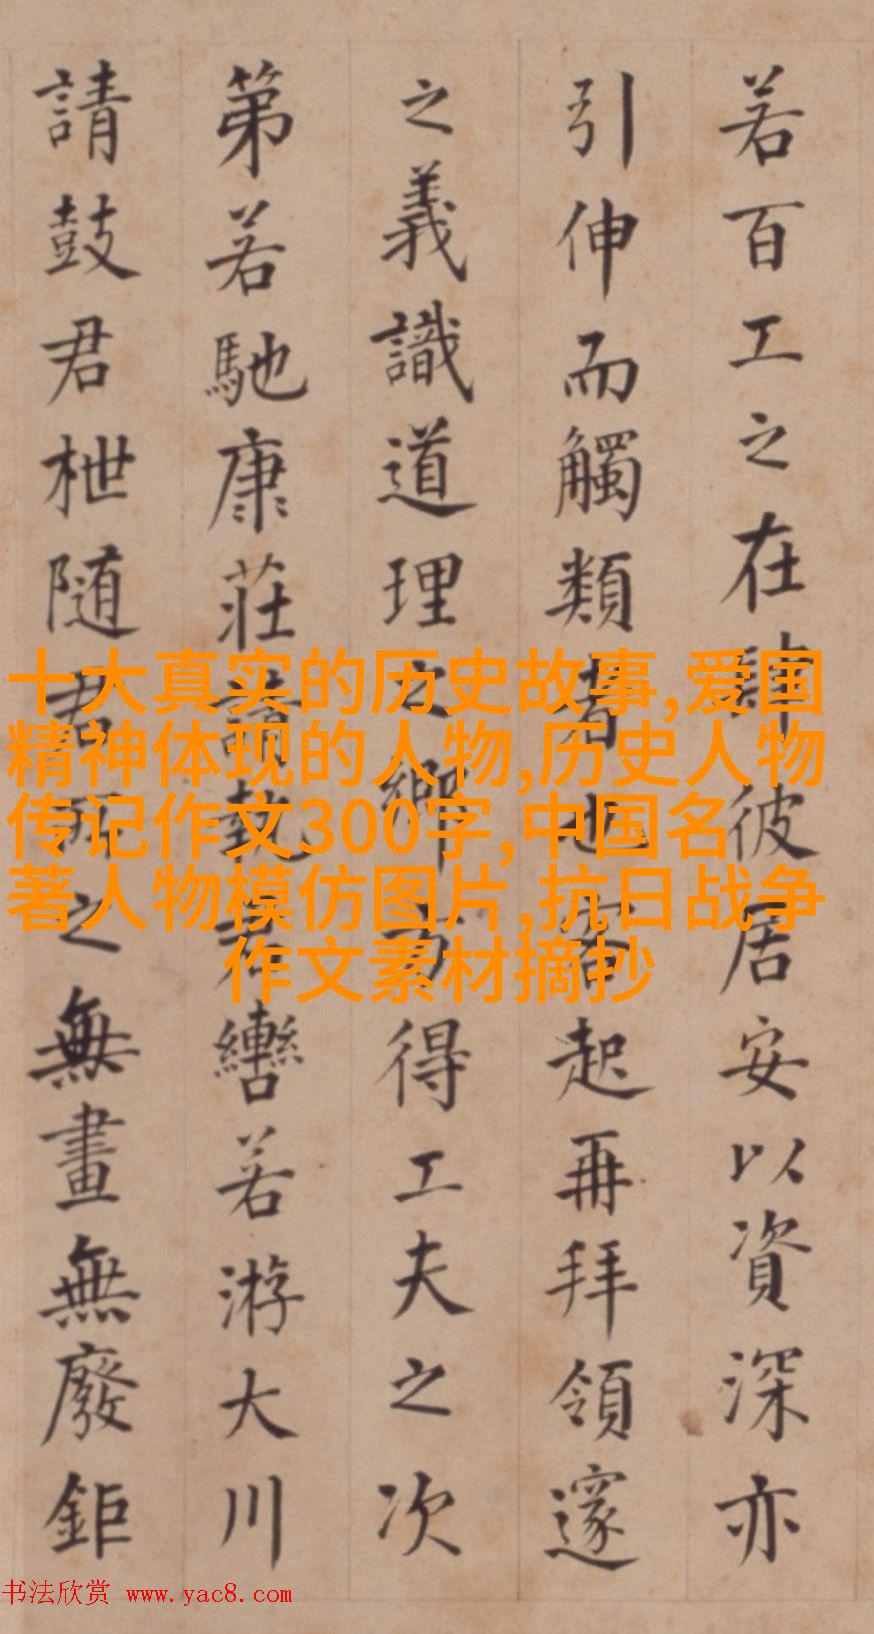 若百工之在肆彼居安以資深亦
引伸而觸類者也客起再拜領邃
之義識道理之鄉方得工夫之次
第若馳康莊請執君轡若游大川
請鼓君枻随君所之無畫無廢鉅
十大真实的历史故事,爱国
精神体现的人物,历史人物
传记作文300字,中国名
著人物模仿图片,抗日战争
作文素材摘抄
书法欣赏 www.yac8.com